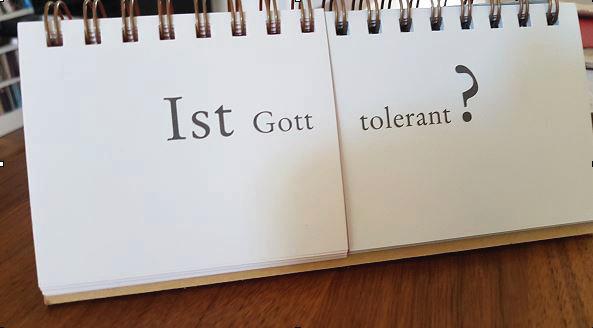 Ist Gott tolerant?